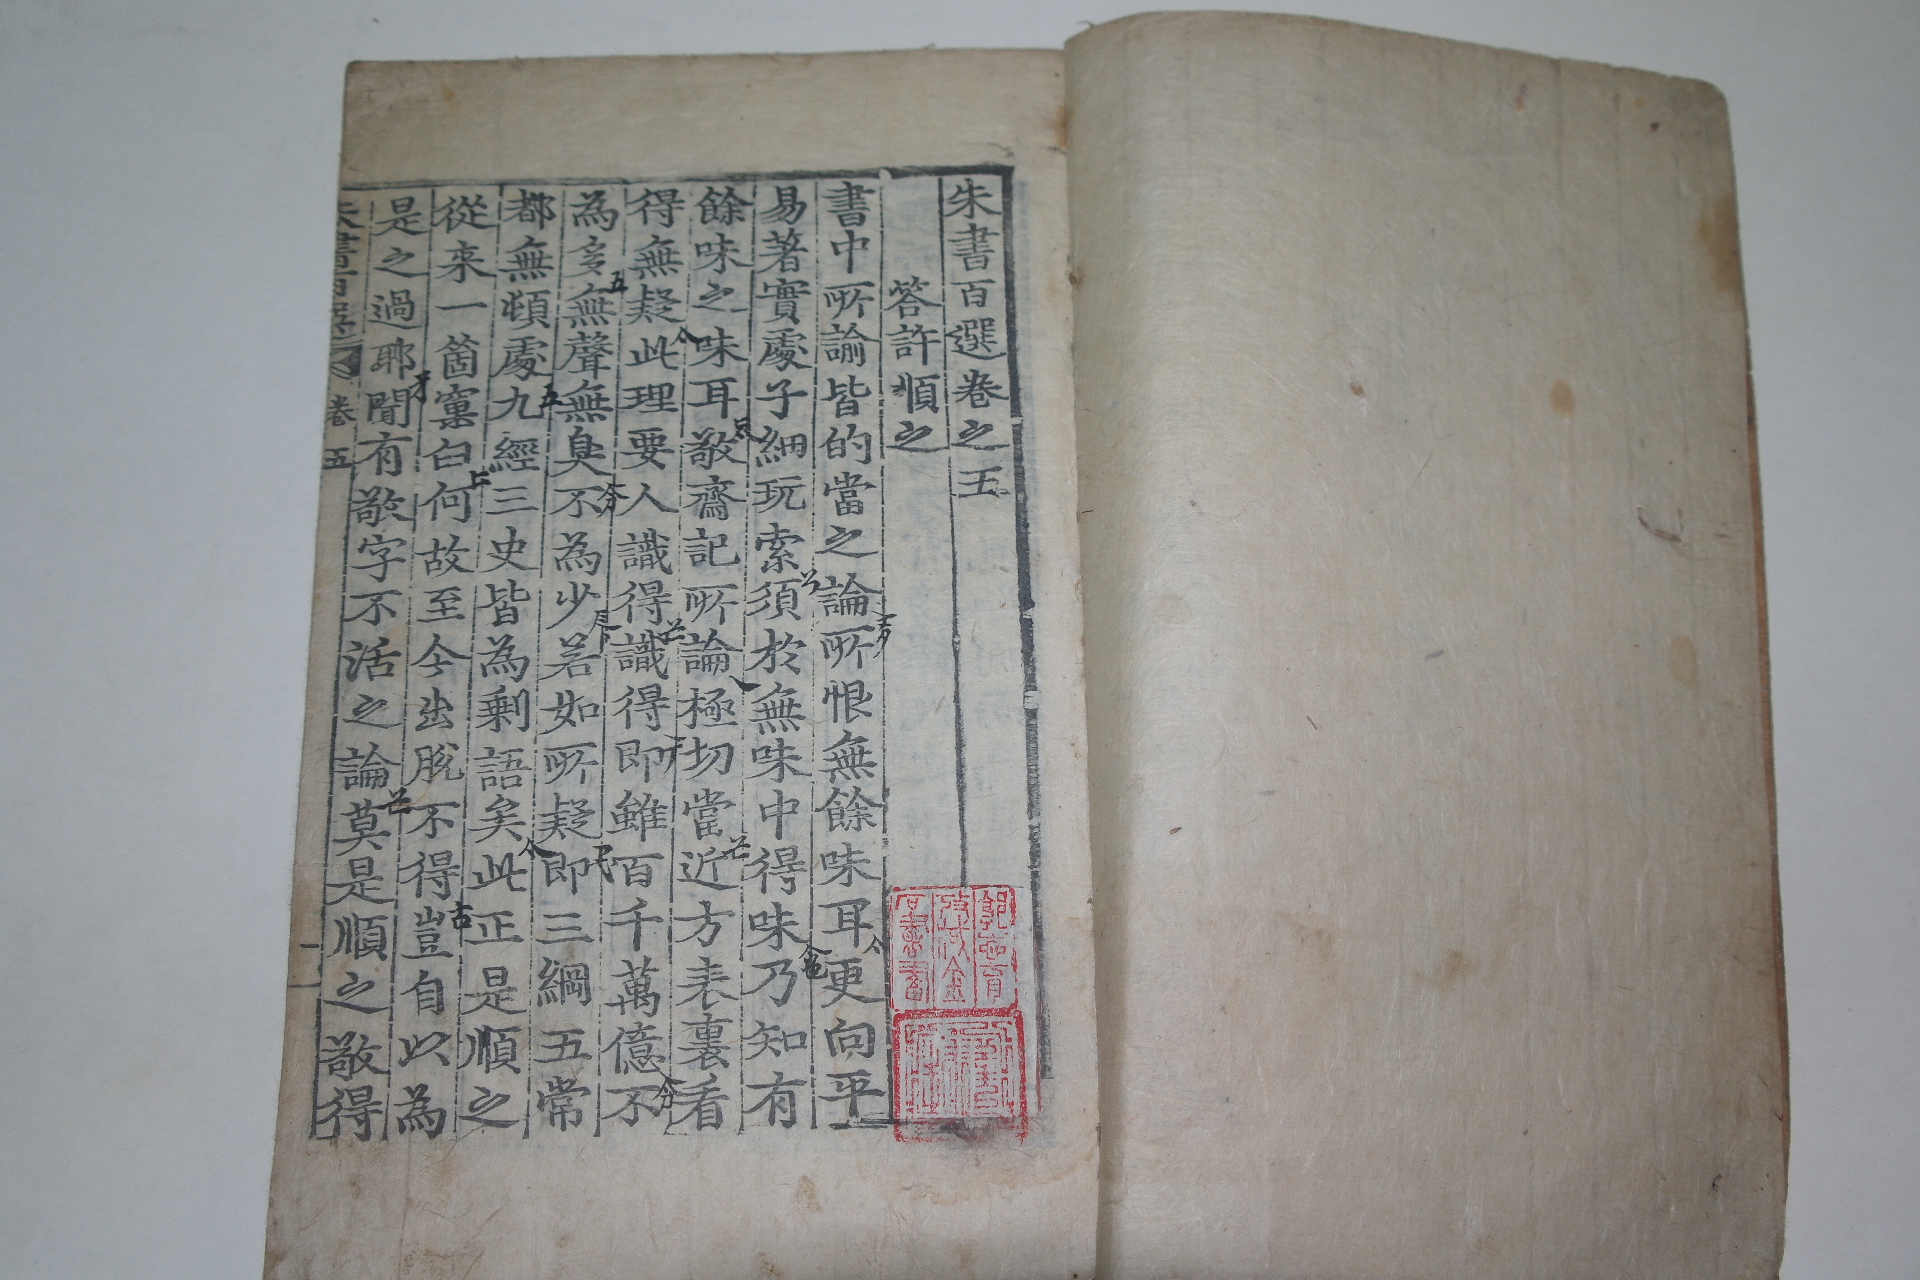 朱書百選卷之五
答許順之
書中所諭皆的當之論所恨無餘味耳更向平
易著實處子細玩索須於無味中得味乃知有
餘味之味耳敬齋記所論極切當近方表裏看
得無疑此理要人識得識得即雖百千萬億不
為多無聲無臭不為少若如所疑即三綱五常
都無頓處九經三史皆為剩語矣此正是順之
從来一箇窠臼何故至今出脫不得豈自以為
是之過耶聞有敬字不活之論莫是順之敬得
朱書百選 卷五 一